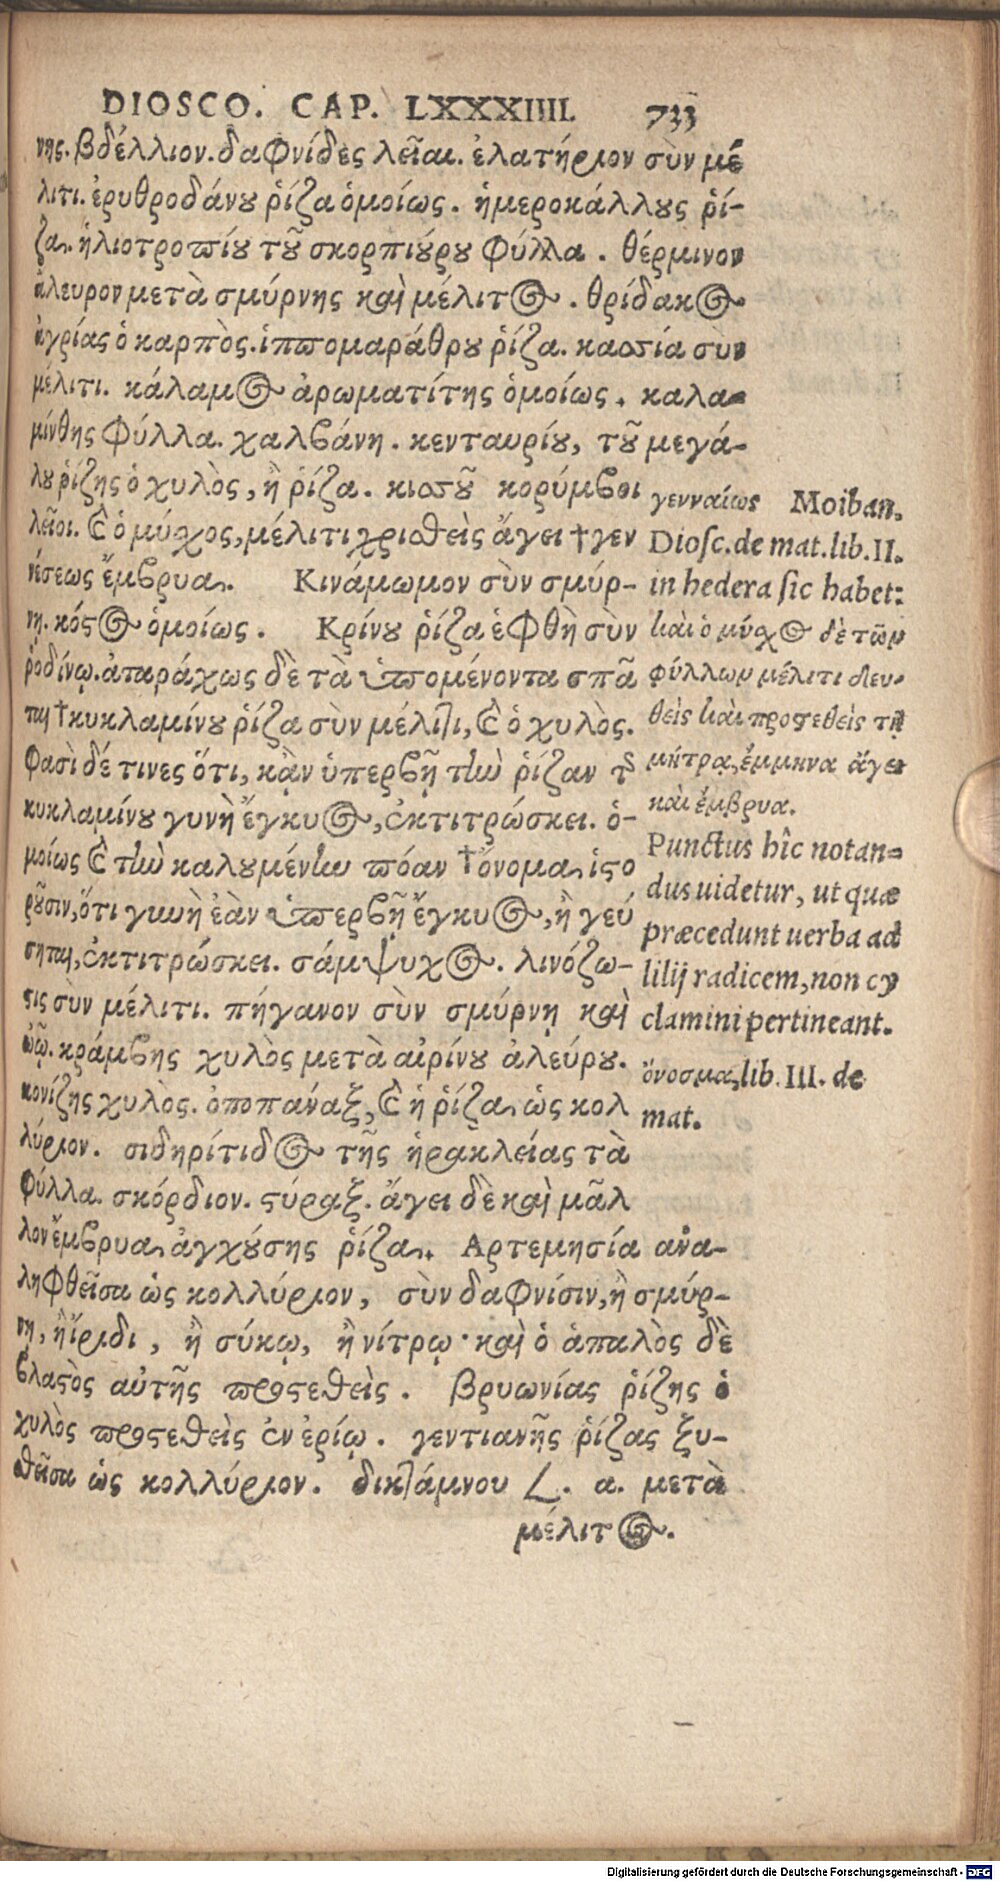 DIOSCO. CAP. LXXXIIII. 733
νης. βδέλλιον. δαφνίδες λεῖαι. ἐλατήριον σὺν μέ
λιτι. ἐρυθροδάνου ῥίζα ὁμοίως. ἡμεροκάλλους ῥί-
ζα. ἡλιοτροπίου τοῦ σκορπιούρου φύλλα. θέρμινον
ἄλευρον μετὰ σμύρνης καὶ μέλιτος. θρίδακος
ἀγρίας ὁ καρπὸς. ἱππομαράθρου ῥίζα. κασσία σὺν
μέλιτι. κάλαμος ἀρωματίτης ὁμοίως. καλα-
μίνθης φύλλα. χαλβάνη. κενταυρίου, τοῦ μεγά-
λου ῥίζης ὁ χυλὸς, ἢ ῥίζα. κισσοῦ κορύμβοι
λεῖοι. καὶ ὁ μύχος, μέλιτι χριθεὶς ἄγει †γεν
νέσεως ἔμβρυα. Κινάμωμον σὺν σμύρ-
νῃ. κόστος ὁμοίως. Κρίνου ῥίζα ἑφθὴ σὺν
ῥοδίνῳ. ἀταράχως δὲ τὰ ὑπομένοντα σπᾶ
ται †κυκλαμίνου ῥίζα σὺν μέλιτι, καὶ ὁ χυλὸς.
Φασὶ δέ τινες ὅτι, κἂν ὑπερβῇ τὴν ῥίζαν τοῦ
κυκλαμίνου γυνὴ ἔγκυος, ἐκτιτρώσκει. ὁ-
μοίως καὶ τὴν καλουμένην πόαν †ὄνομα, ἱστο
ροῦσιν, ὅτι γυνὴ ἐὰν ὑπερβῇ ἔγκυος, ἢ γεύ
σηται, ἐκτιτρώσκει. σάμψυχος. λινόζω-
στις σὺν μέλιτι. πήγανον σὺν σμύρνῃ καὶ
ὠῷ. κράμβης χυλὸς μετὰ αἰρίνου ἀλεύρου.
κονίζης χυλὸς. ὀποπάναξ, καὶ ἡ ῥίζα, ὡς κολ
λύριον. σιδηρίτιδος τῆς ἡρακλείας τὰ
φύλλα. σκόρδιον. στύραξ. ἄγει δὲ καὶ μᾶλ
λον ἔμβρυα, ἀγχούσης ῥίζα. Αρτεμησία ἀνα-
ληφθεῖσα ὡς κολλύριον, σὺν δαφνίσιν, ἢ σμύρ-
νῃ, ἢ ἴριδι, ἢ σύκῳ, ἢ νίτρῳ· καὶ ὁ ἁπαλὸς δὲ
βλαστὸς αὐτῆς προστεθεὶς. βρυωνίας ῥίζης ὁ
χυλὸς προστεθεὶς ἐν ἐρίῳ. γεντιανῆς ῥίζας ξυ-
θεῖσα ὡς κολλύριον. δικτάμνου L. α. μετὰ
μέλιτος.
γενναίως Moiban.
Diosc. de mat. lib. II.
in hedera sic habet:
καὶ ὁ μύχος δὲ τῶν
φύλλων μέλιτι δευ-
θεὶς καὶ προστεθεὶς τῇ
μήτρᾳ, ἔμμηνα ἄγει
καὶ ἔμβρυα.
Punctus hîc notan-
dus uidetur, ut quæ
præcedunt uerba ad
lilij radicem, non cy
clamini pertineant.
ὄνοσμα, lib. III. de
mat.
Digitalisierung gefördert durch die Deutsche Forschungsgemeinschaft - DFG